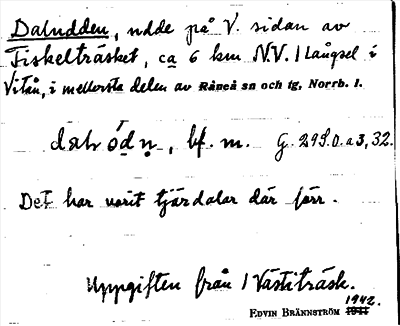 Daludden, udde på V. sidan av
Fiskelträsket, ca 6 km N.V. / Långsel i
Vitån, i mellersta delen av Råneå sn och tg, Norrb. l.
bf. m. G. 29 32.
Det har varit tjärdalar där förr.
Uppgiften från / Västiträsk.
1942.
EDVIN BRÄNNSTRÖM 1941